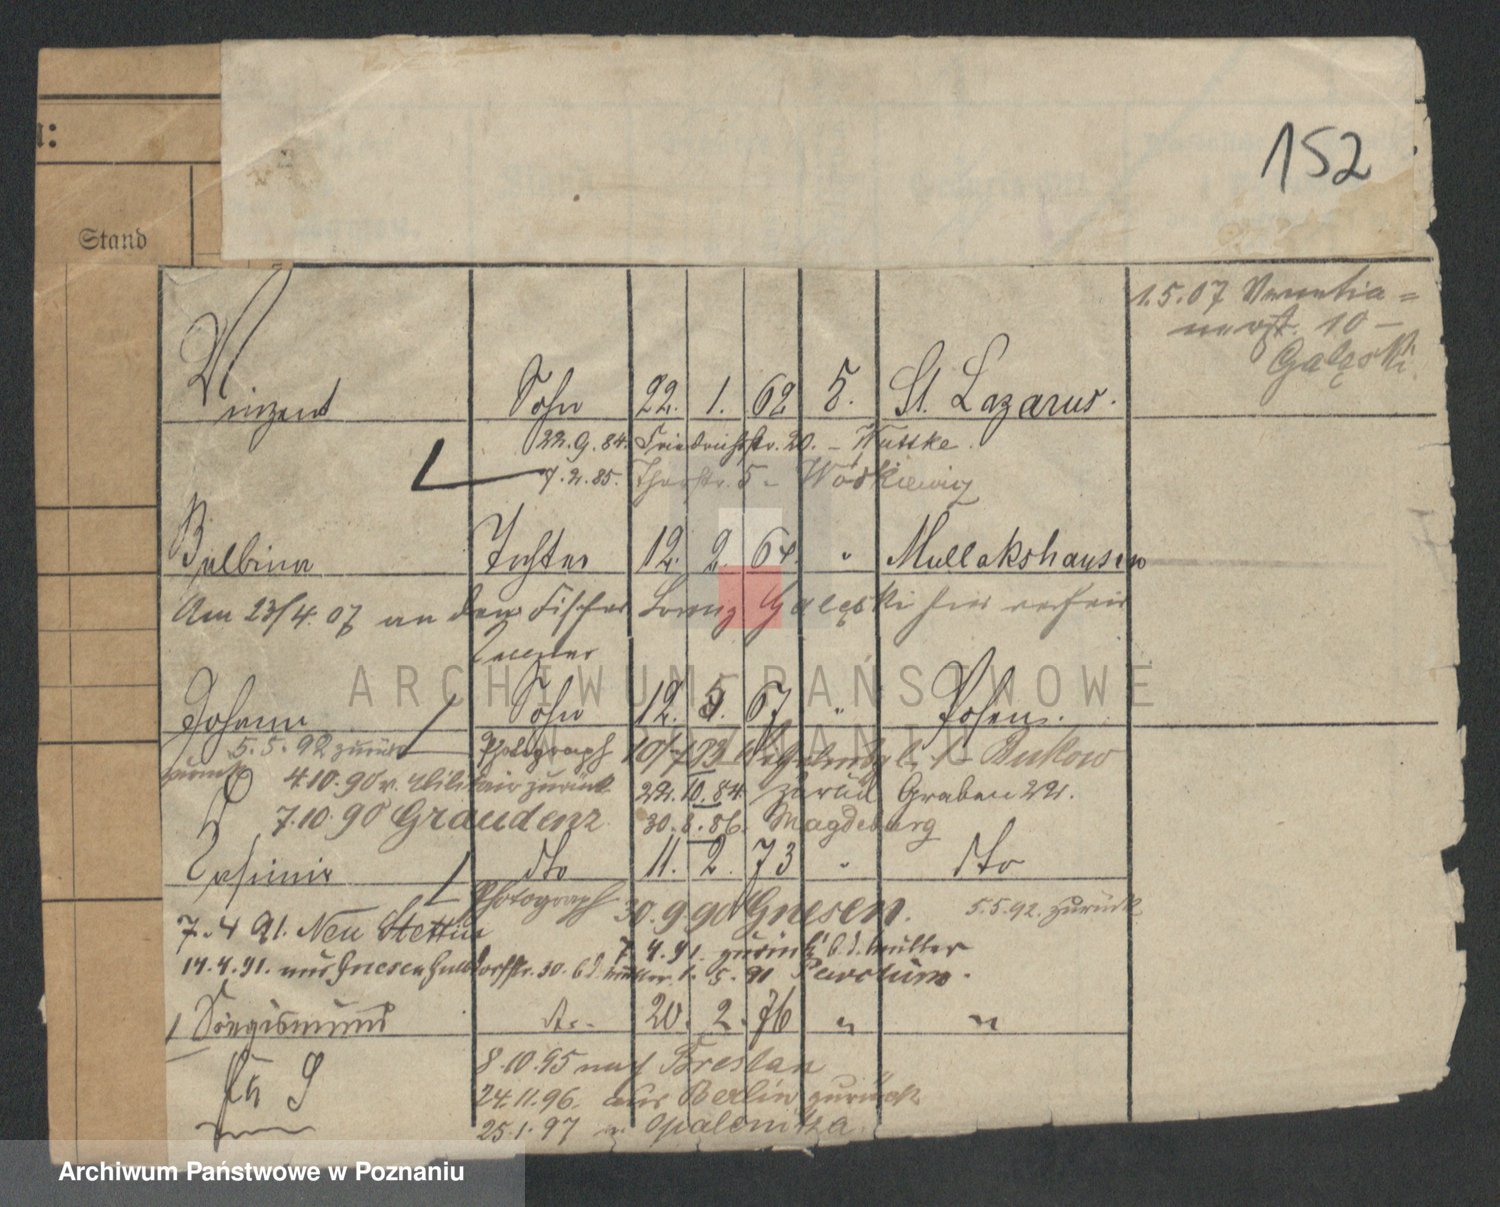 152
Stand
1.5.07 Venetia=
nerst. 10 –
Gałęski
Vinzent Sohn 22. 1. 62 5. St. Lazarus.
22.9.84. Friedrichstr. 20. – Wuttke.
7.2.85. 5 –
Balbina Tochter 12. 2. 64. " Mullakshausen
Am 23/4. 07 an den Fischer Gałęski hier verhei
Johann Sohn 12. 5. 67 " Posen.
5.5.92 zurück Photograph Bukow
zurück 4.10.90 v. Militair zurück 22.10.84 zurück Graben 22.
7.10.90 Graudenz 30.8.86. Magdeburg
Casimir dto 11. 2. 73 " dto
Photograph 30.9.90 Gnesen. 5.5.92. zurück
7.4 91. Neu Stettin
7.4.91. zurück b.d. Mutter
14.4.91. aus Gnesen 30. b.d. Mutter 1. 5. 91
Siegismund dto 20. 2. 76 " "
8.10.95 nach Breslau
24.11.96. aus Berlin zurück
25.1.97 n. Opalenitza.
ARCHIWUM PAŃSTWOWE
W POZNANIU
Archiwum Państwowe w Poznaniu